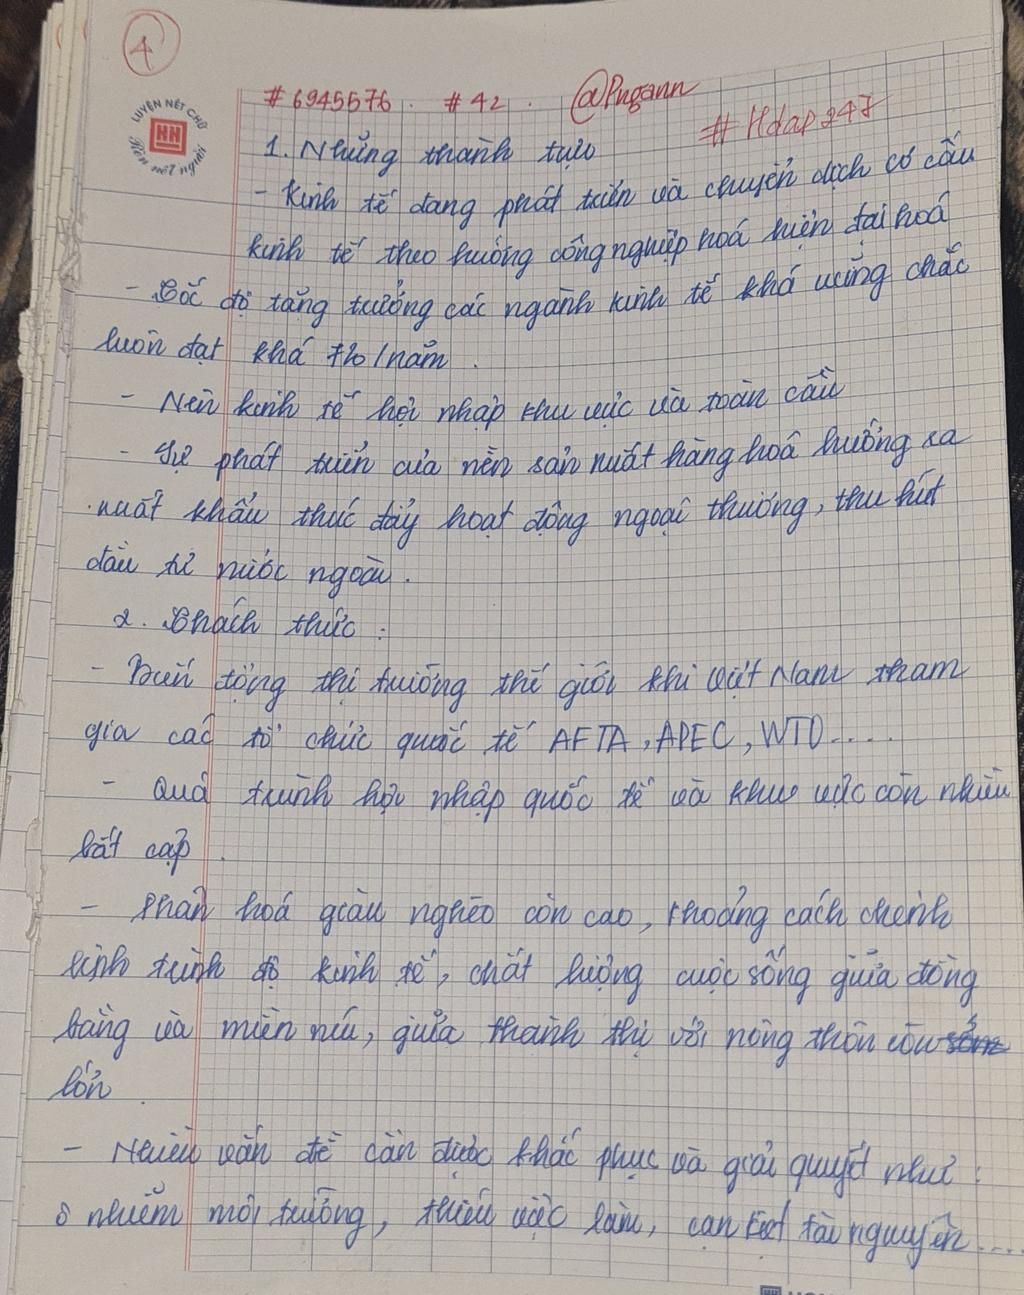 4
LUYỆN NÉT CHỮ
HH
Rèn nết người
#6945576. #42. @Pngann
#Hdap247
1. Những thành tựu
- Kinh tế đang phát triển và chuyển dịch cơ cấu
kinh tế theo hướng công nghiệp hoá hiện đại hoá
- Tốc độ tăng trưởng các ngành kinh tế khá vững chắc
luôn đạt khá 7%/năm.
- Nền kinh tế hội nhập khu vực và toàn cầu
- Sự phát triển của nền sản xuất hàng hoá hướng ra
xuất khẩu thúc đẩy hoạt động ngoại thương, thu hút
đầu tư nước ngoài.
2. Thách thức:
- Biến động thị trường thế giới khi Việt Nam tham
gia các tổ chức quốc tế AFTA, APEC, WTO....
- Quá trình hội nhập quốc tế và khu vực còn nhiều
bất cập.
- Phân hoá giàu nghèo còn cao, khoảng cách chênh
lệnh trình độ kinh tế, chất lượng cuộc sống giữa đồng
bằng và miền núi, giữa thành thị với nông thôn còn
lớn.
- Nhiều vấn đề cần được khắc phục và giải quyết như:
ô nhiễm môi trường, thiếu việc làm, cạn kiệt tài nguyên....